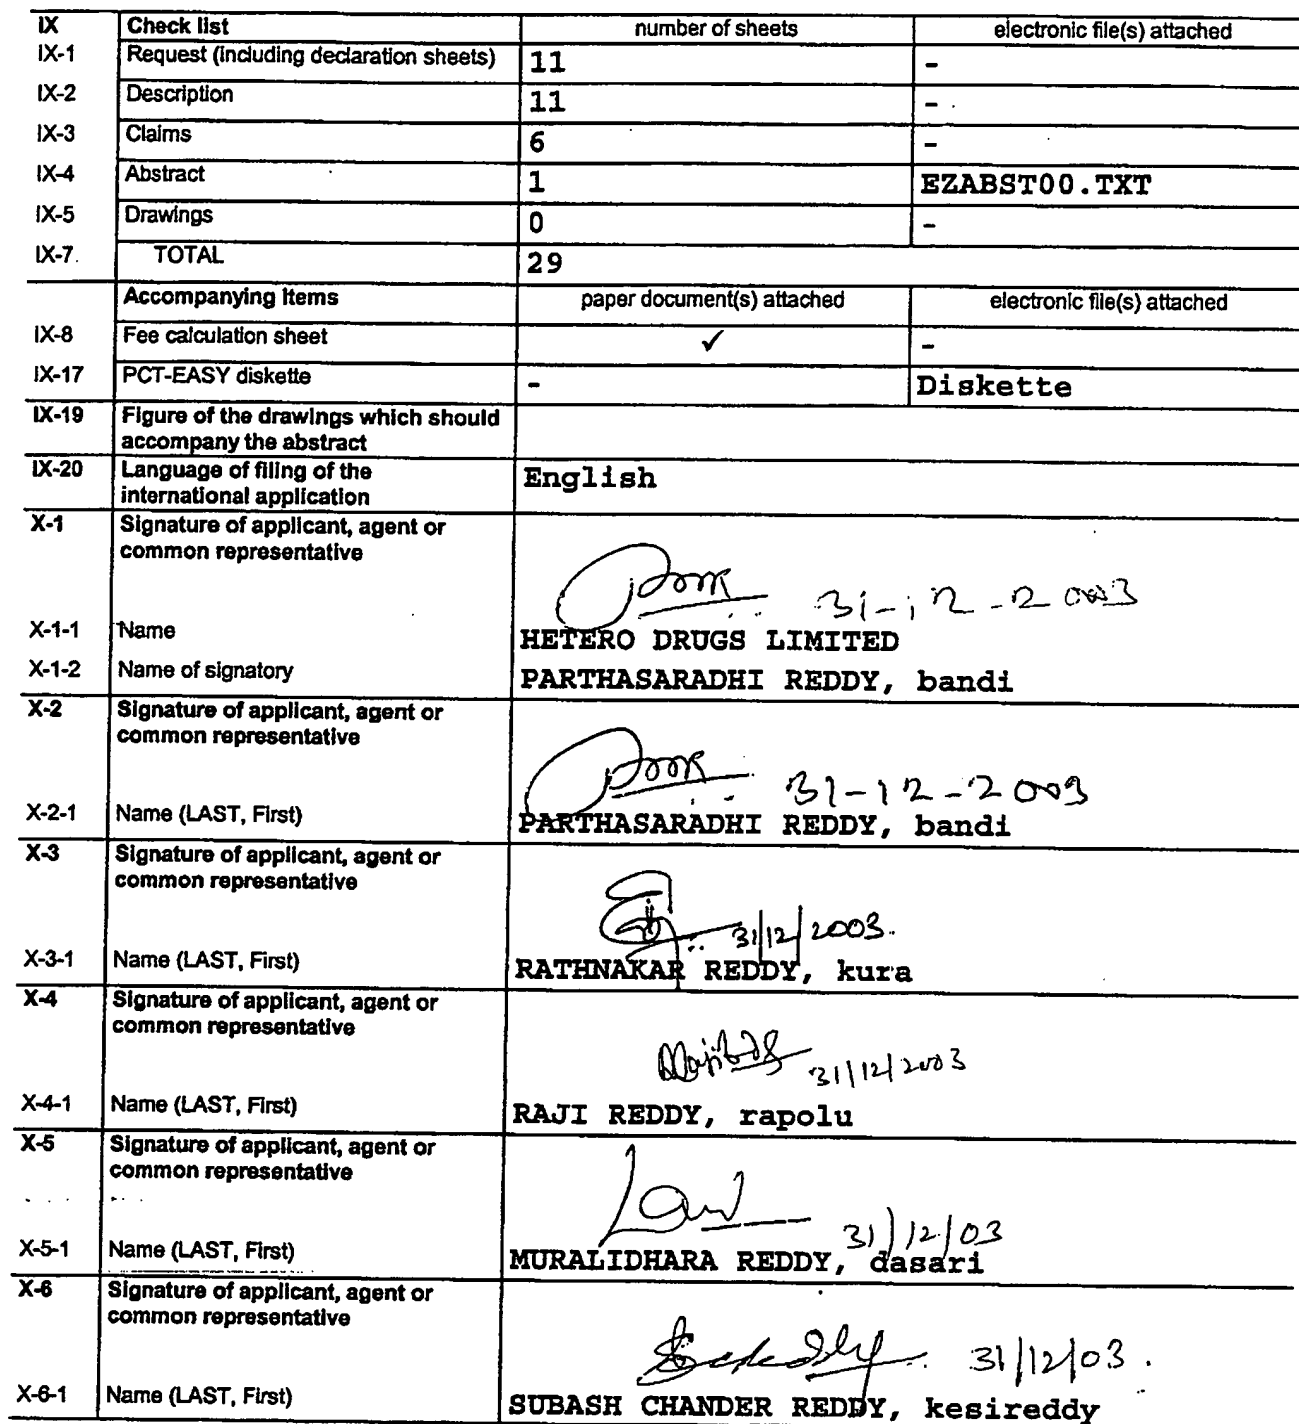 IX Check list number of sheets electronic file(s) attached
IX-1 Request (including declaration sheets) 11 -
IX-2 Description 11 -
IX-3 Claims 6 -
IX-4 Abstract 1 EZABST00.TXT
IX-5 Drawings 0 -
IX-7 TOTAL 29
Accompanying Items paper document(s) attached electronic file(s) attached
IX-8 Fee calculation sheet ✓ -
IX-17 PCT-EASY diskette - Diskette
IX-19 Figure of the drawings which should
accompany the abstract
IX-20 Language of filing of the
international application English
X-1 Signature of applicant, agent or
common representative
31-12-2003
X-1-1 Name HETERO DRUGS LIMITED
X-1-2 Name of signatory PARTHASARADHI REDDY, bandi
X-2 Signature of applicant, agent or
common representative
31-12-2003
X-2-1 Name (LAST, First) PARTHASARADHI REDDY, bandi
X-3 Signature of applicant, agent or
common representative
31/12/2003.
X-3-1 Name (LAST, First) RATHNAKAR REDDY, kura
X-4 Signature of applicant, agent or
common representative
31/12/2003
X-4-1 Name (LAST, First) RAJI REDDY, rapolu
X-5 Signature of applicant, agent or
common representative
31/12/03
X-5-1 Name (LAST, First) MURALIDHARA REDDY, dasari
X-6 Signature of applicant, agent or
common representative
31/12/03.
X-6-1 Name (LAST, First) SUBASH CHANDER REDDY, kesireddy